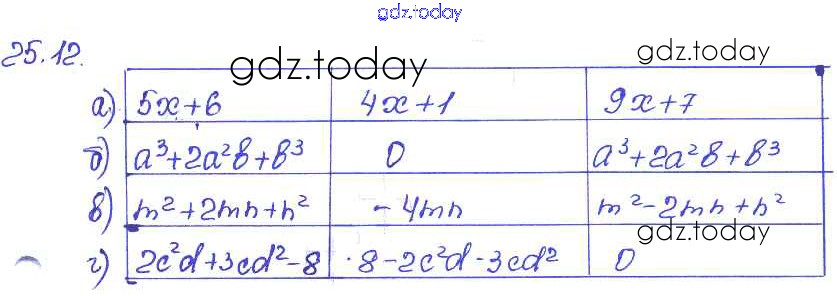 gdz.today
25.12.
gdz.today gdz.today
а) 5x+6 4x+1 9x+7
б) a³+2a²b+b³ 0 a³+2a²b+b³
в) m²+2mn+n² -4mn m²-2mn+n²
gdz.today
г) 2c²d+3cd²-8 8-2c²d-3cd² 0